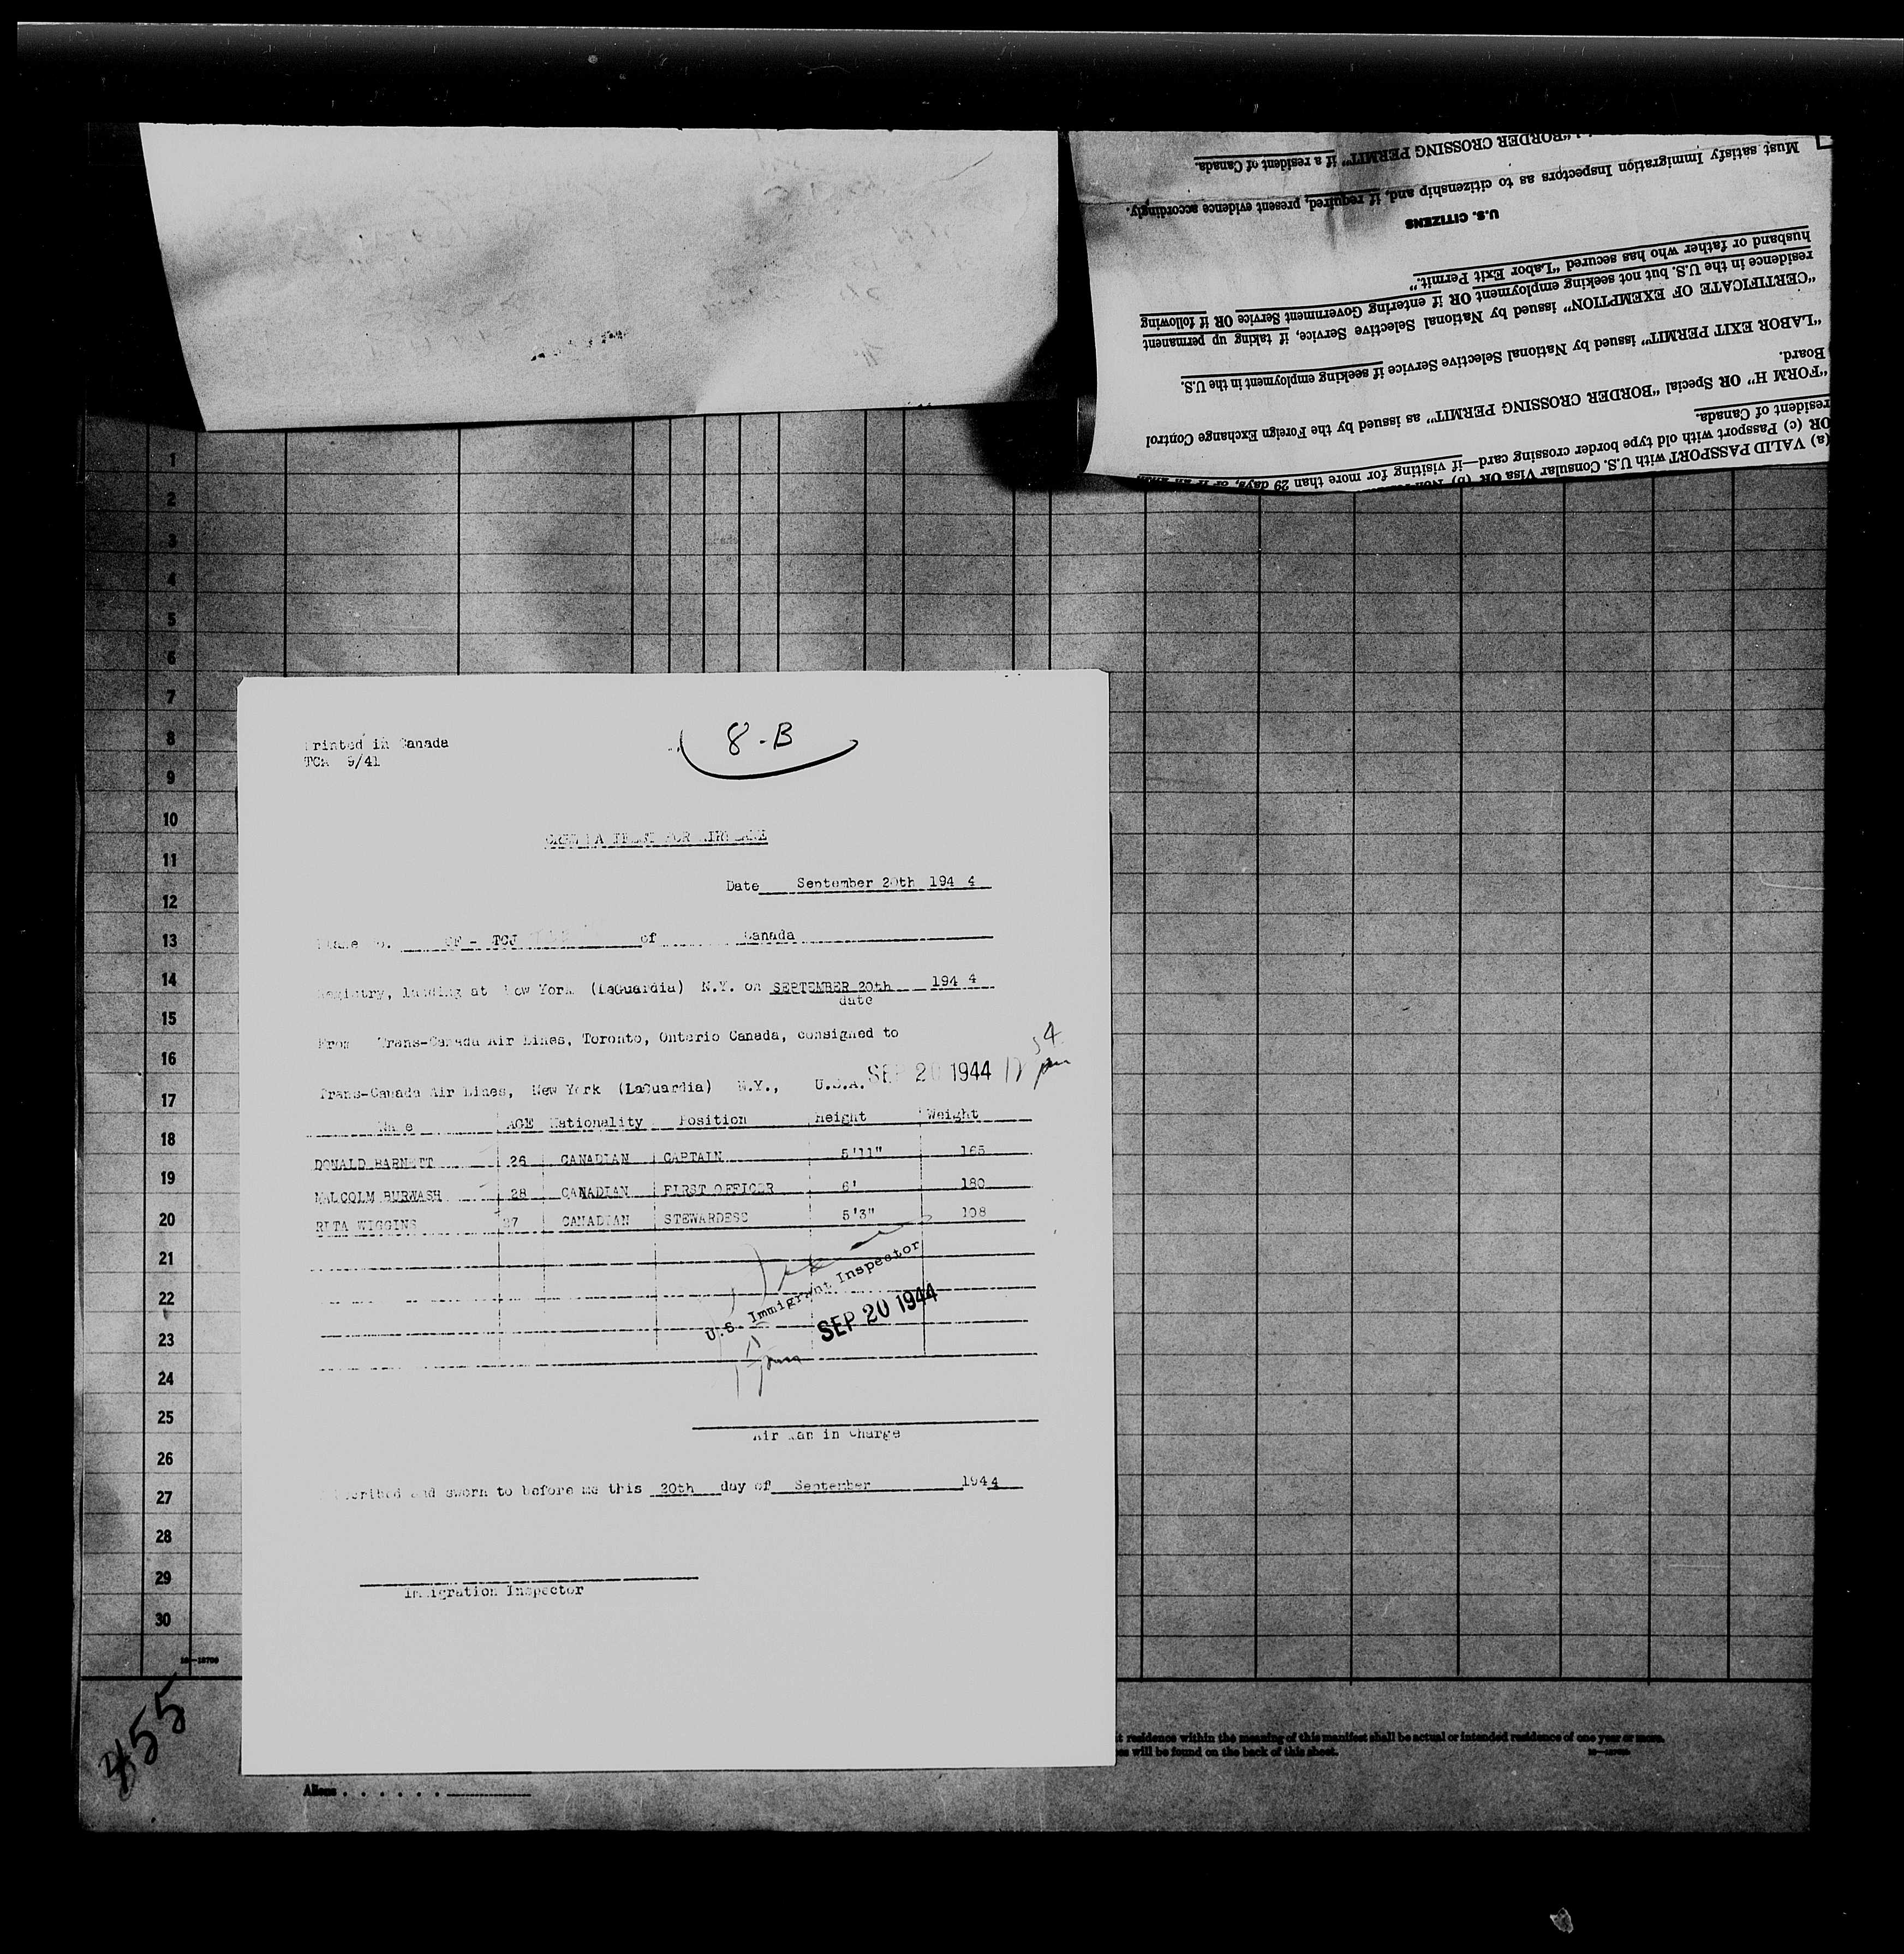 "BORDER CROSSING PERMIT" if a resident of Canada.
Must satisfy Immigration Inspectors as to citizenship and, if required, present evidence accordingly.
U.S. CITIZENS
husband or father who has secured "Labor Exit Permit."
residence in the U.S. but not seeking employment OR if entering Government Service OR if following
"CERTIFICATE OF EXEMPTION" issued by National Selective Service, if taking up permanent
"LABOR EXIT PERMIT" issued by National Selective Service if seeking employment in the U.S.
Board.
"FORM H" OR Special "BORDER CROSSING PERMIT" as issued by the Foreign Exchange Control
resident of Canada.
OR (c) Passport with old type border crossing card—if visiting for more than 29 days, or if an
(a) VALID PASSPORT with U.S. Consular Visa OR (b)
1
2
3
4
5
6
7
8
9
10
11
12
13
14
15
16
17
18
19
20
21
22
23
24
25
26
27
28
29
30
Printed in Canada
TCA 9/41
8-B
CREW MANIFEST FOR AIRPLANE
Date September 20th 194 4
Plane No. CF - TCJ of Canada
Registry, landing at New York (LaGuardia) N.Y. on SEPTEMBER 20th 194 4
date
From Trans-Canada Air Lines, Toronto, Ontario Canada, consigned to
Trans-Canada Air Lines, New York (LaGuardia) N.Y., U.S.A. SEP 20 1944
Name AGE Nationality Position Height Weight
DONALD BARNETT 26 CANADIAN CAPTAIN 5'11" 165
MALCOLM BURWASH 28 CANADIAN FIRST OFFICER 6' 180
RITA WIGGINS 27 CANADIAN STEWARDESS 5'3" 108
U.S. Immigrant Inspector
SEP 20 1944
Air Man in Charge
Subscribed and sworn to before me this 20th day of September 1944
Immigration Inspector
455
t residence within the meaning of this manifest shall be actual or intended residence of one year or more.
es will be found on the back of this sheet.
Aliens . . . . . .